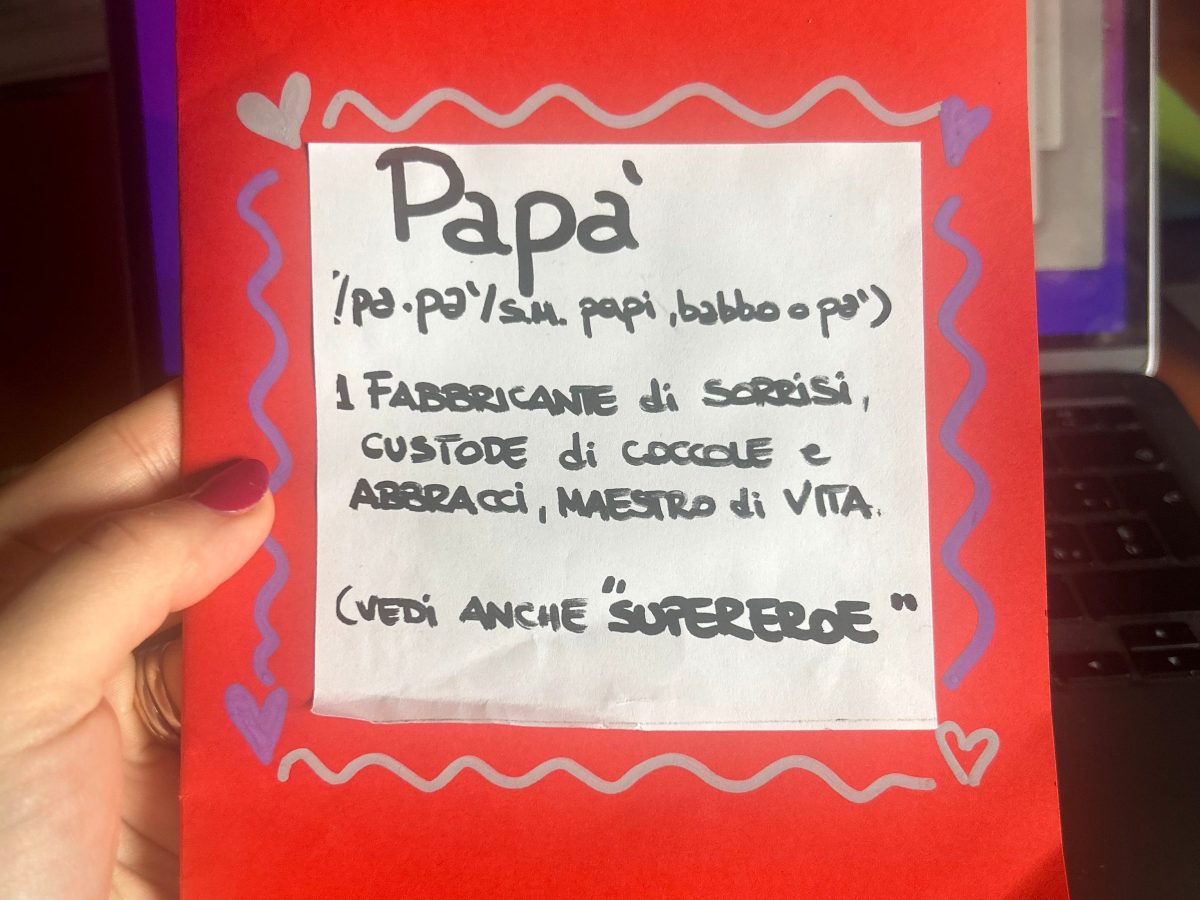 Papà
/pa·pà/s.m. papi, babbo o pa')
1 FABBRICANTE di SORRISI,
CUSTODE di COCCOLE e
ABBRACCI, MAESTRO di VITA.
(VEDI ANCHE "SUPEREROE"